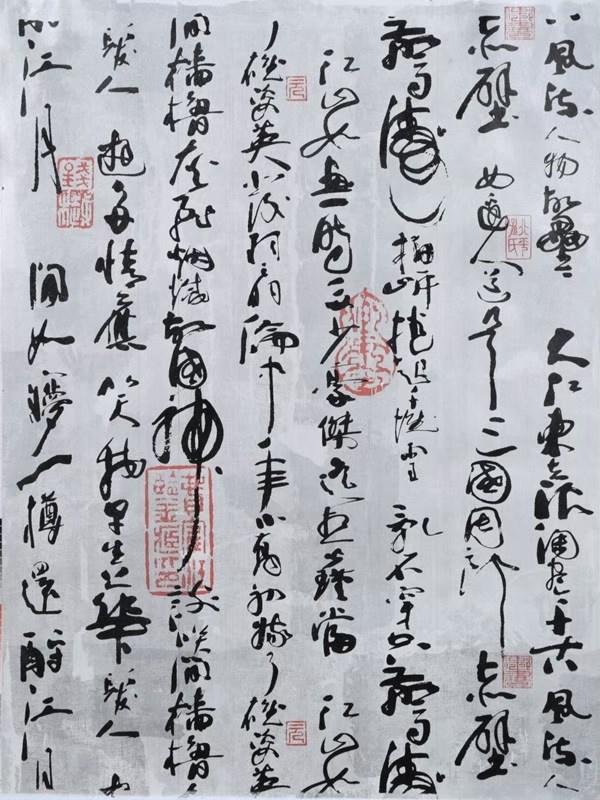 風流人物故壘 大江東去浪淘盡千古風流人
赤壁 西邊人道是三國周郎 赤壁
驚濤拍岸捲起千堆雪 亂石穿空驚濤
江山如畫一時多少豪傑遙想公瑾當 江山如
了雄姿英發羽扇綸巾 年小喬初嫁了雄姿英
間檣櫓灰飛煙滅故國神 談笑間檣櫓
髮人 遊多情應笑我早生華髮人
江月 間如夢一樽還酹江月